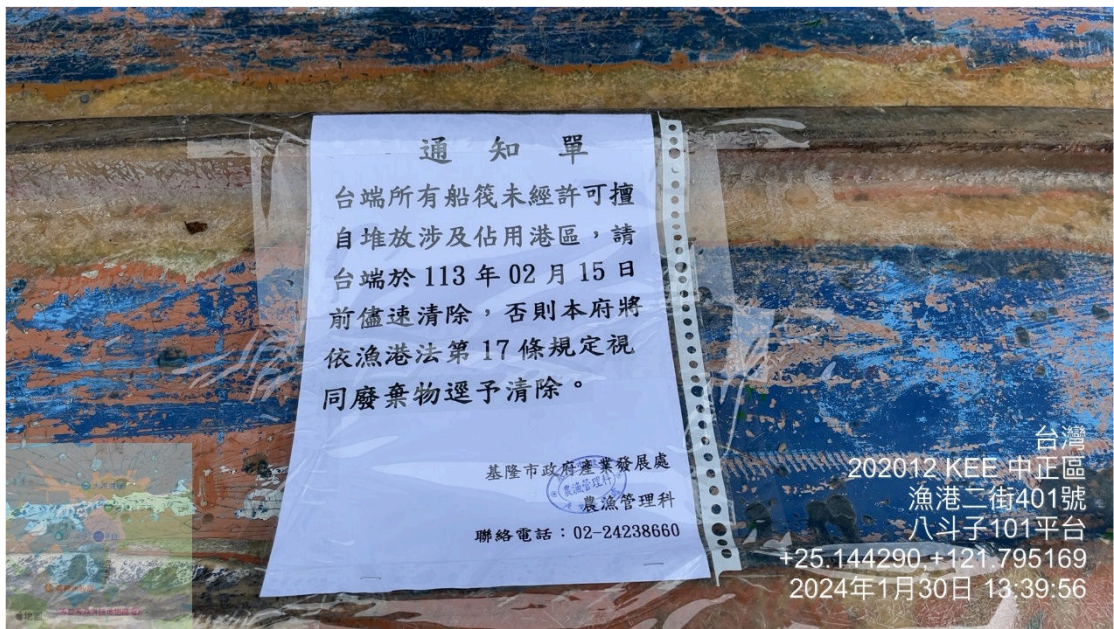 通知單
台端所有船筏未經許可擅
自堆放涉及佔用港區，請
台端於 113 年 02 月 15 日
前儘速清除，否則本府將
依漁港法第 17 條規定視
同廢棄物逕予清除。
基隆市政府產業發展處
農漁管理科
農漁管理科
聯絡電話：02-24238660
台灣
202012 KEE 中正區
漁港二街401號
八斗子101平台
+25.144290,+121.795169
2024年1月30日 13:39:56